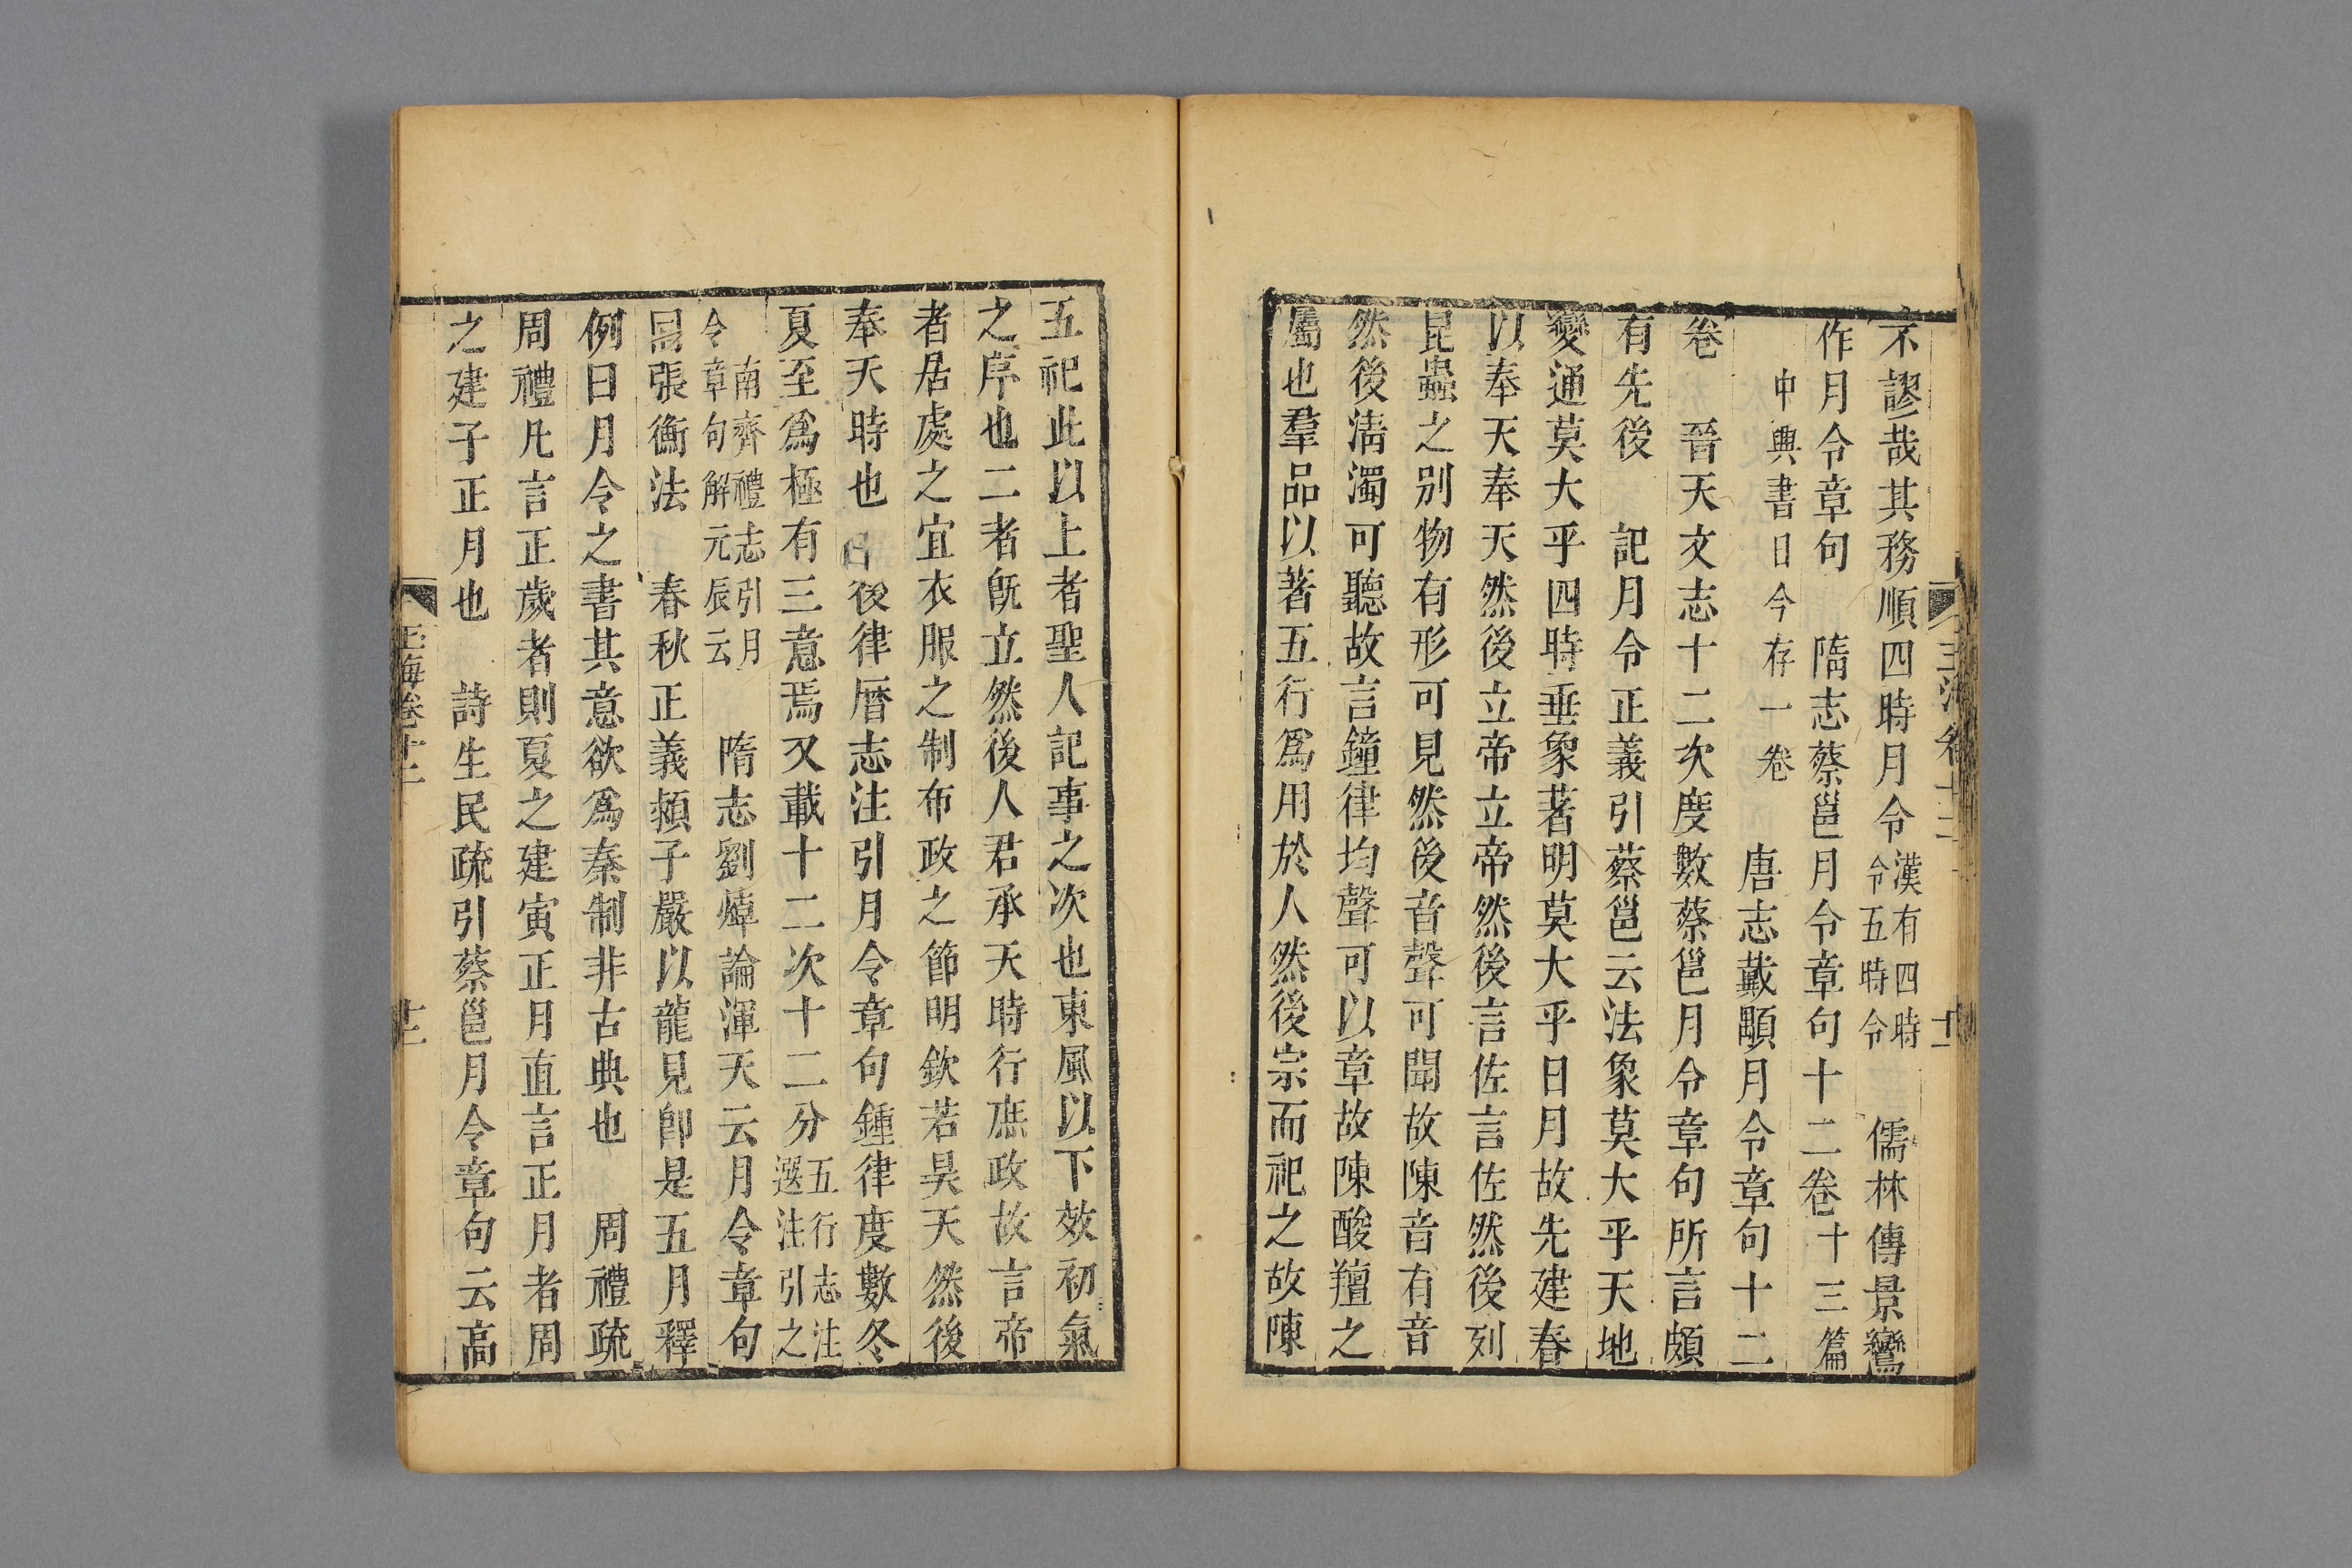 玉海卷十二 十一
不謬哉其務順四時月令漢有四時令五時令 儒林傳景鸞
作月令章句 隋志蔡邕月令章句十二卷十三篇
中興書目今存一卷 唐志戴顒月令章句十二
卷 晉天文志十二次度數蔡邕月令章句所言頗
有先後 記月令正義引蔡邕云法象莫大乎天地
變通莫大乎四時垂象著明莫大乎日月故先建春
以奉天奉天然後立帝立帝然後言佐言佐然後列
昆蟲之別物有形可見然後音聲可聞故陳音有音
然後清濁可聽故言鐘律均聲可以章故陳酸羶之
屬也羣品以著五行爲用於人然後宗而祀之故陳
五祀此以上者聖人記事之次也東風以下效初氣
之序也二者旣立然後人君承天時行庶政故言帝
者居處之宜衣服之制布政之節明欽若昊天然後
奉天時也 後律曆志注引月令章句鍾律度數冬
夏至爲極有三意焉又載十二次十二分五行志注選注引之
南齊禮志引月令章句解元辰云 隋志劉焯論渾天云月令章句
張衡法 春秋正義潁子嚴以龍見卽是五月釋
例曰月令之書其意欲爲秦制非古典也 周禮疏
周禮凡言正歲者則夏之建寅正月直言正月者周
之建子正月也 詩生民疏引蔡邕月令章句云高
玉海卷十二 十二